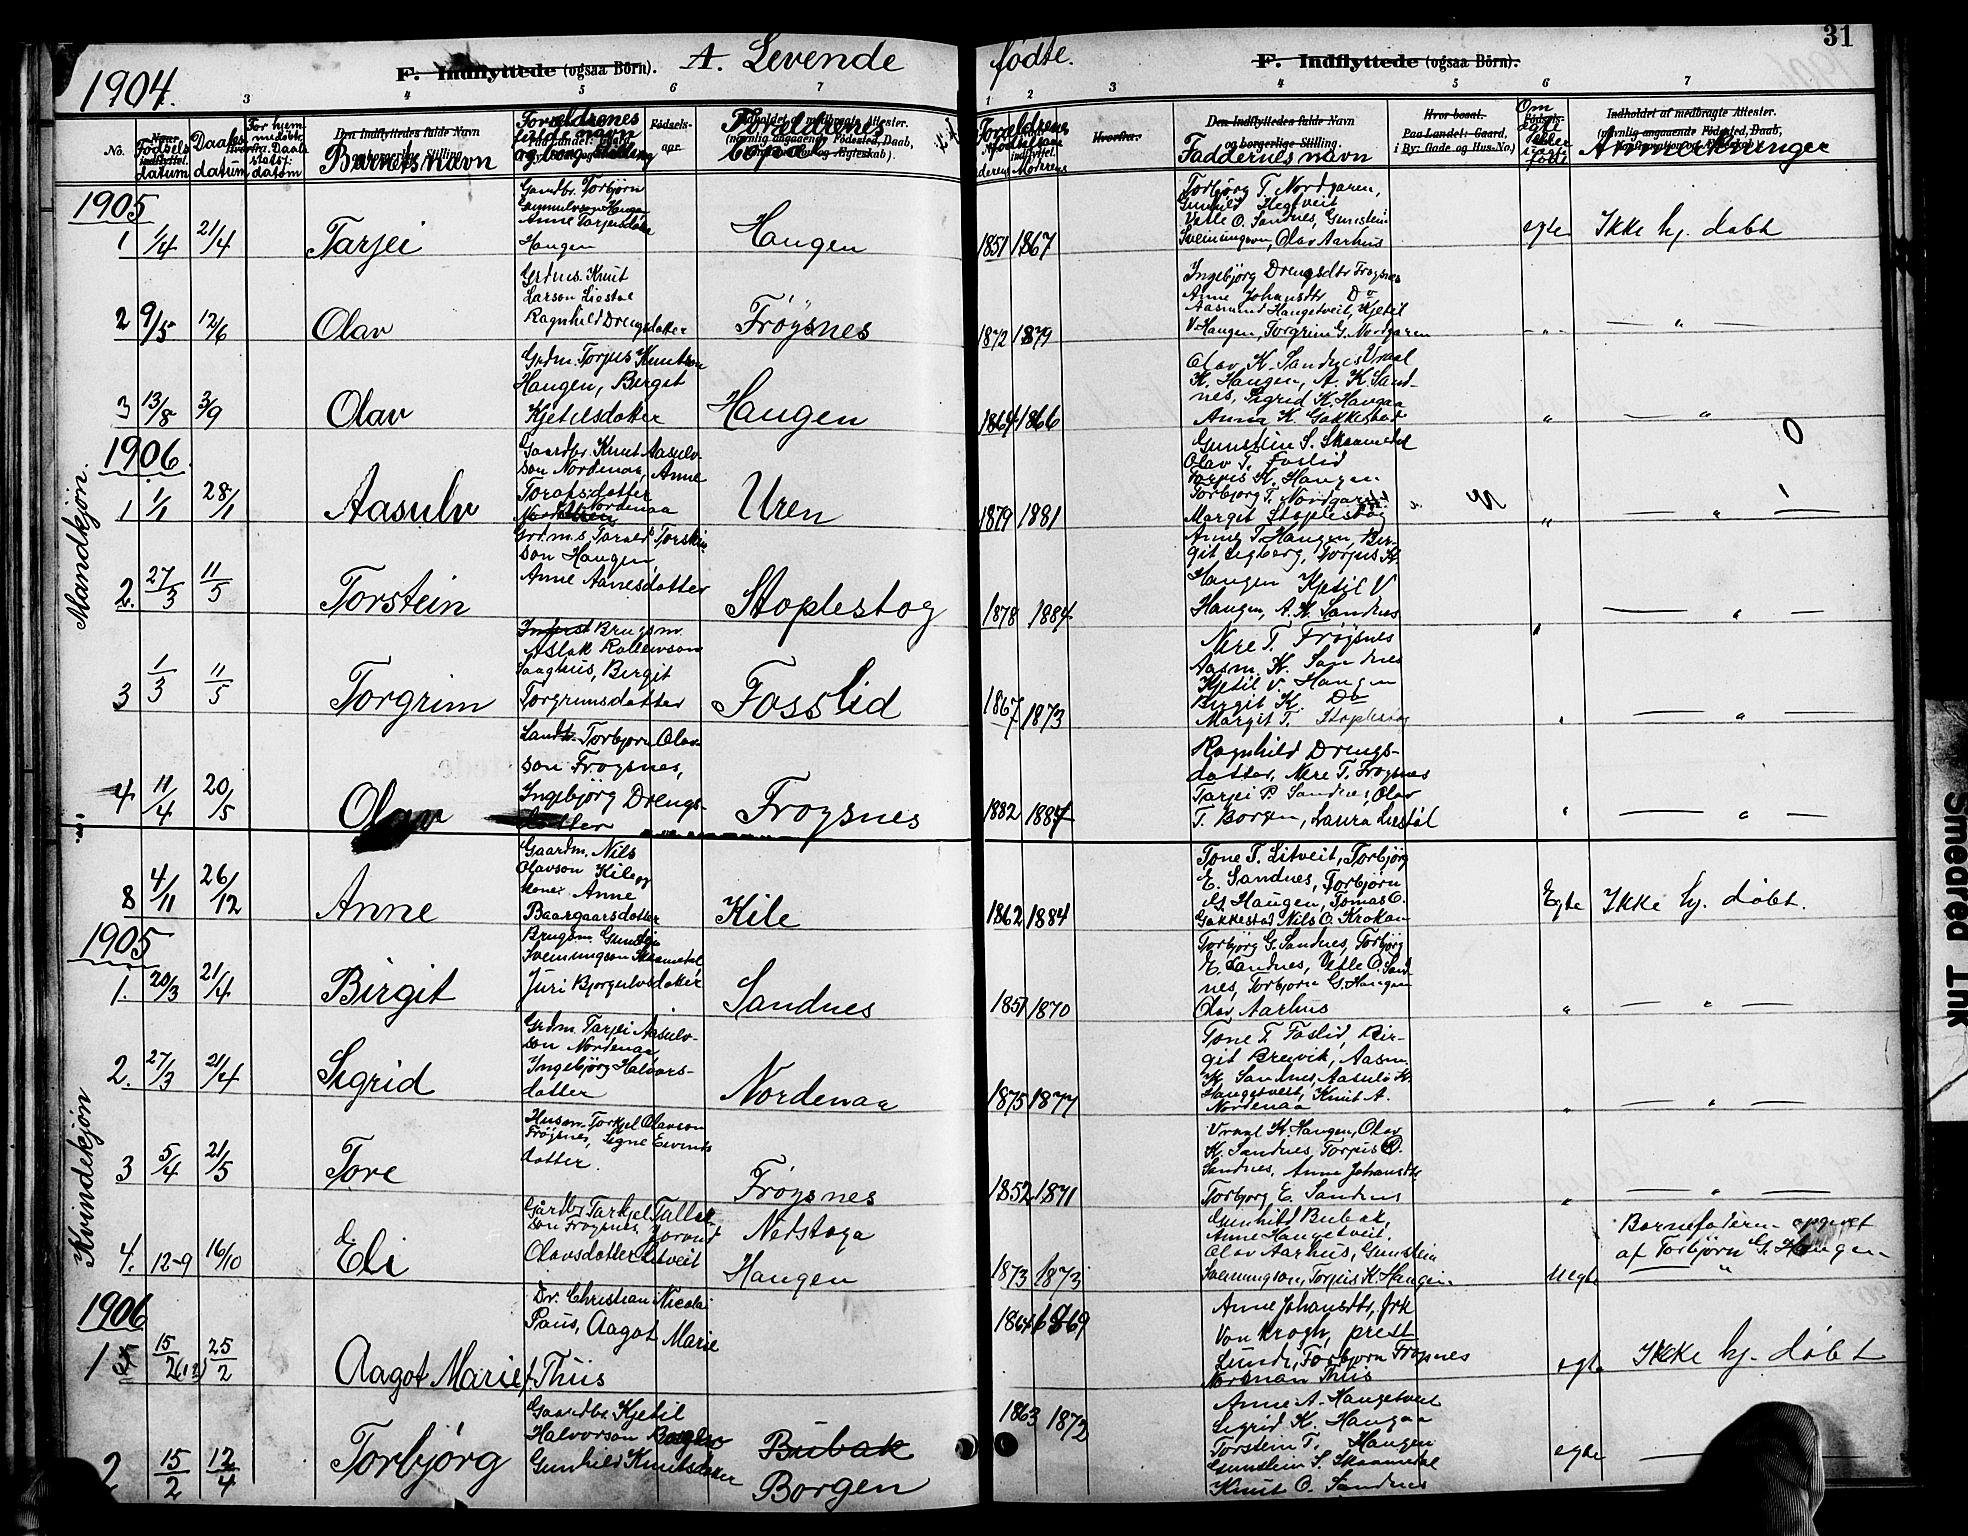 1904.
F. Indflyttede (ogsaa Börn).
A. Levende
fødte.
F. Indflyttede (ogsaa Börn).
31
3 4 5 6 7
1 2 3 4 5 6 7
No.
Fødsels datum
Daabs datum
For hjemmedøbte: Daab stadf. datum
Den Indflyttedes fulde Navn
Barnets navn
Forældrenes fulde navn og borg. stilling
Fødsels-
Forældrenes bopæl
Forældrenes fødselsaar
Moderens
Hvorfra.
Den Indflyttedes fulde Navn
og borgerlige Stilling.
Faddernes navn
Hvor bosat.
Paa Landet: Gaard,
i By: Gade og Hus-No.)
Om egte eller uegte født
Indholdet af medbragte Attester.
Anmerkninger
Mandkjøn.
1905
1 1/4 21/4 Tarjei
Gaardbr. Torbjørn
Gunnulvson Haugen
Anne Tarjeisdatter
Haugen
Haugen
1851 1867
Torbjørg T. Nordgaren,
Gunhild Hegtveit
Vetle O. Sandnes, Gunstein
Sveinungson, Olav Aarhus
egte Ikke hj. døbt
2 9/5 12/6 Olav
Grdms. Knut
Larson Liestøl
Ragnhild Drengsdatter
Frøysnes
1872 1879
Ingebjörg Drengsdtr Frøysnes
Anne Johansdtr Do
Aasmund Haugetveit, Kjetil
V Haugen, Torgrim G. Nordgaren
- " - — " —
3 13/8 3/9 Olav
Grdm. Torjus Knutson
Haugen, Bergit
Kjetilsdatter
Haugen
1864 1866
Olav K. Sandnes Vraal
K. Haugen, A. K. Sand-
nes, Sigrid K. Haugaa
Anna K. Gakkestad
" — " —
1906.
1 1/1 28/1 Aasulv
Gaardbr. Knut Aasulv-
son Nordenaa, Anne
Toraksdatter
Nordenaa
Uren
1879 1881
Gunstein S. Skaamedal
Olav T. Foslid
Torjus K. Haugen
Torbjørg T. Nordgaren
Margit Stoplestog
" — " —
2. 27/3 11/5 Torstein
Grdms. Torald Torstein
son Haugen,
Anne Aanesdatter
Stoplestog
1878 1884
Anne T Haugen, Ber-
git Ligberg, Torjus K.
Haugen Kjetil V
Haugen, A. K. Sandnes
" — " —
3 1/3 11/5 Torgrim
Brugsm.
Aslak Rollevson
Saaghus, Bergit
Torgrimsdatter
Fosslid
1867 1873
Nere T. Frøysnes
Aasm. K. Sandnes
Kjetil V. Haugen
Birgit K. Do
Margit T. Stoplestog
" — " —
4 11/4 20/5 Olav
Landh. Torbjørn Olav-
son Frøysnes,
Ingebjörg Drengs-
datter
Frøysnes
1882 1884
Ragnhild Drengs-
datter, Nere T. Frøysnes
Tarjei P. Sandnes, Olav
T. Borgen, Laura Liestøl
" — " —
Kvindekjøn
8 4/11 26/12 Anne
Gaardm. Nils
Olavson Kile og
kone Anne
Baargaarsdotter
Kile
1862 1884
Tone T. Litveit, Torbjörg
E. Sandnes, Torbjørn
G. Haugen, Tomas O.
Gakkestad, Nils O. Krokan
Egte Ikke hj. døbt.
1905
1. 20/3 21/4 Birgit
Brugsm. Gunstein
Sveinungson Skaamedal
Juri Bjørgulvsdatter
Sandnes
1851 1870
Torbjørg G. Sandnes, Torbjørg
E. Sandnes, Vetle O. Sand-
nes, Torbjørn G. Haugen
Olav Aarhus
" — " —
2. 27/3 21/4 Sigrid
Grdm. Tarjei Aasulv-
son Nordenaa
Ingebjörg Halvors-
datter
Nordenaa
1875 1877
Tone T. Foslid, Bir-
git Breivik, Aasm.
K. Sandnes, Aasulv K.
Haugetveit, Knut A.
Nordenaa
" — " —
3 5/4 21/5 Tore
Husm. Torkjel Olavson
Frøysnes, Signe Eivinds
datter.
Frøysnes
1852 1871
Vraal K Haugen, Olav
K. Sandnes, Torjus O.
Sandnes, Anne Johansdtr
Torbjørg E. Sandnes
" — " —
4. 12-9 16/10 Eli
Gårdbr. Tarkjel Tallak-
son Frøysnes, Jorund
Olavsdatter Litveit
Netstoga
Haugen
1873 1873
Gunhild Bubak,
Anne Haugetveit.
Olav Aarhus, Gunstein
Sveinungson, Torjus K. Haugen
Uegte
Barnefaderen opgivet
af Torbjørn G. Haugen
1906
1 15/2 25/2 Aagot Marie
Dr. Christian Nicolai
Paus, Aagot Marie
f. Thiis
1864 1869
Anne Johansdtr, frk
Von Krogh, prest
Lunde, Torbjorn Frøysnes
Norman Thiis
egte Ikke hj. døbt
2 15/2 12/4 Torbjörg
Gaardbr. Kjetil
Halvorson
Gunhild Knutsdatter
Bubak
Borgen
1863 1872
Anne A. Haugetveit
Sigrid K. Haugaa
Torstein T. Haugen
Gunstein S. Skaamedal
Knut O. Sandnes
egte —
Smeared Ink